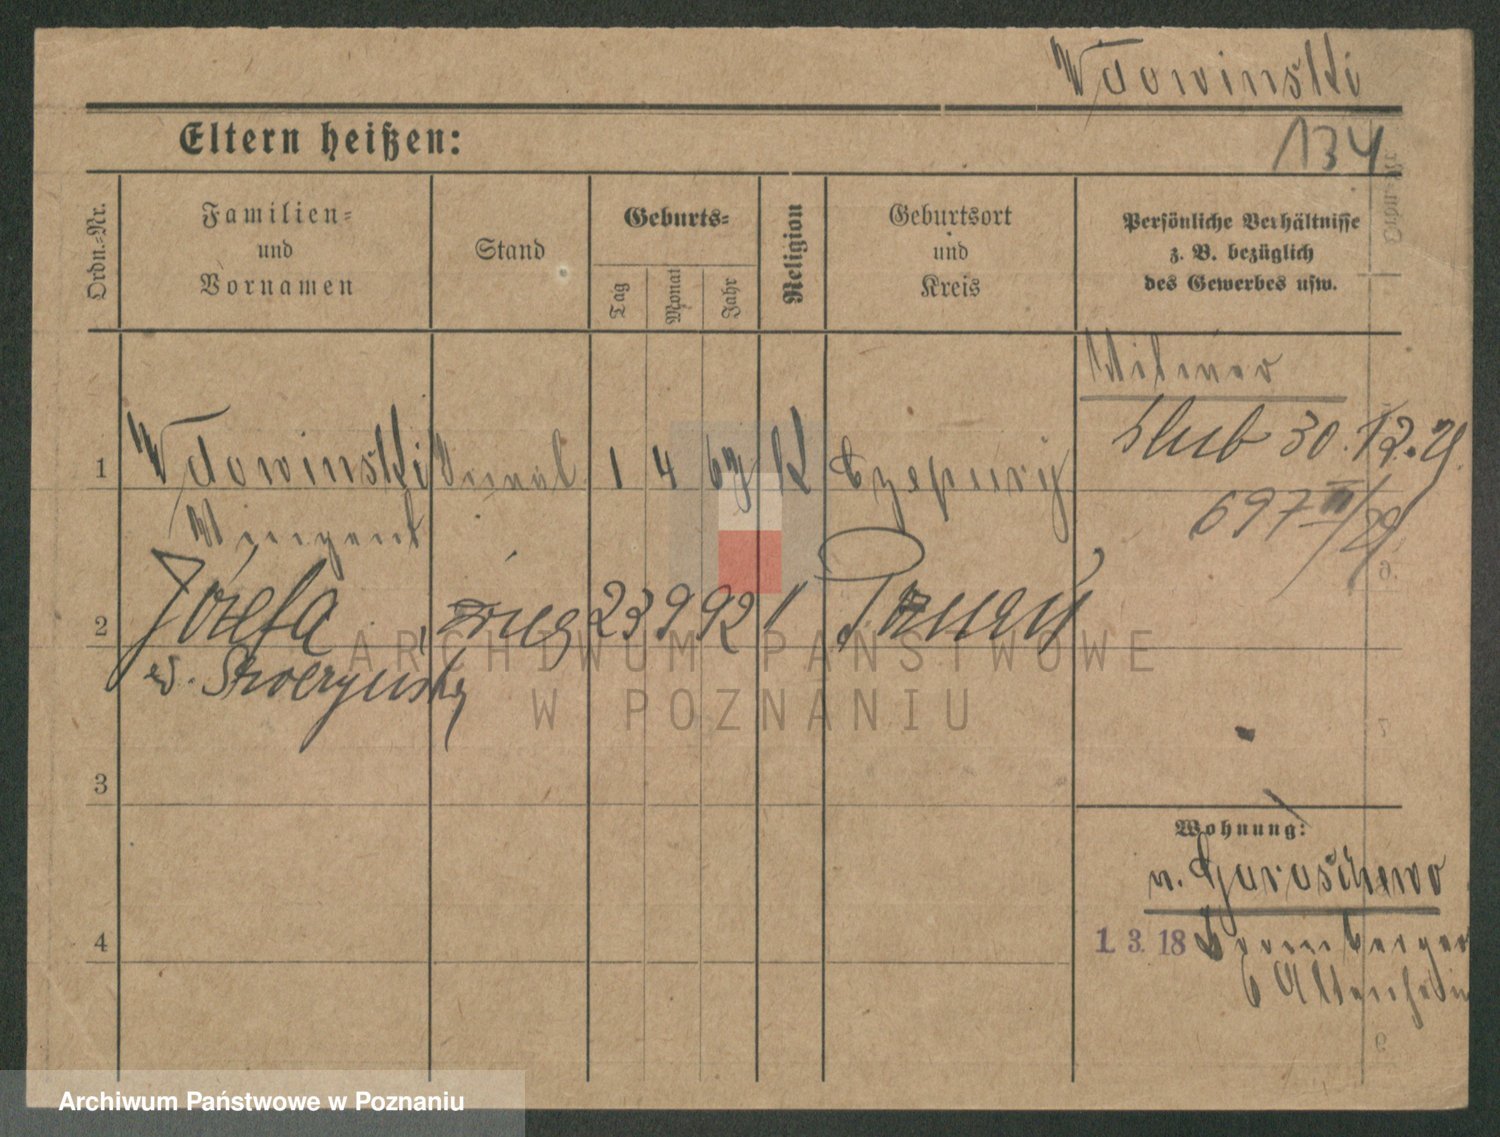 Wdowinski
134
Eltern heißen:
Ordn.-Nr.
Familien-
und
Vornamen
Stand
Geburts-
Tag
Monat
Jahr
Religion
Geburtsort
und
Kreis
Persönliche Verhältnisse
z. B. bezüglich
des Gewerbes usw.
Witwer
1 Wdowinski 1 4 67 K Czepury
ślub 30.12.29.
Vinzent
697 III/29
2 Józefa 23 9 92 Poznań
Skoczyńska
3
4
Wohnung:
n. Garaschewo
1. 3. 18 Bromberger
6 Altenheim
ARCHIWUM PAŃSTWOWE
W POZNANIU
Archiwum Państwowe w Poznaniu